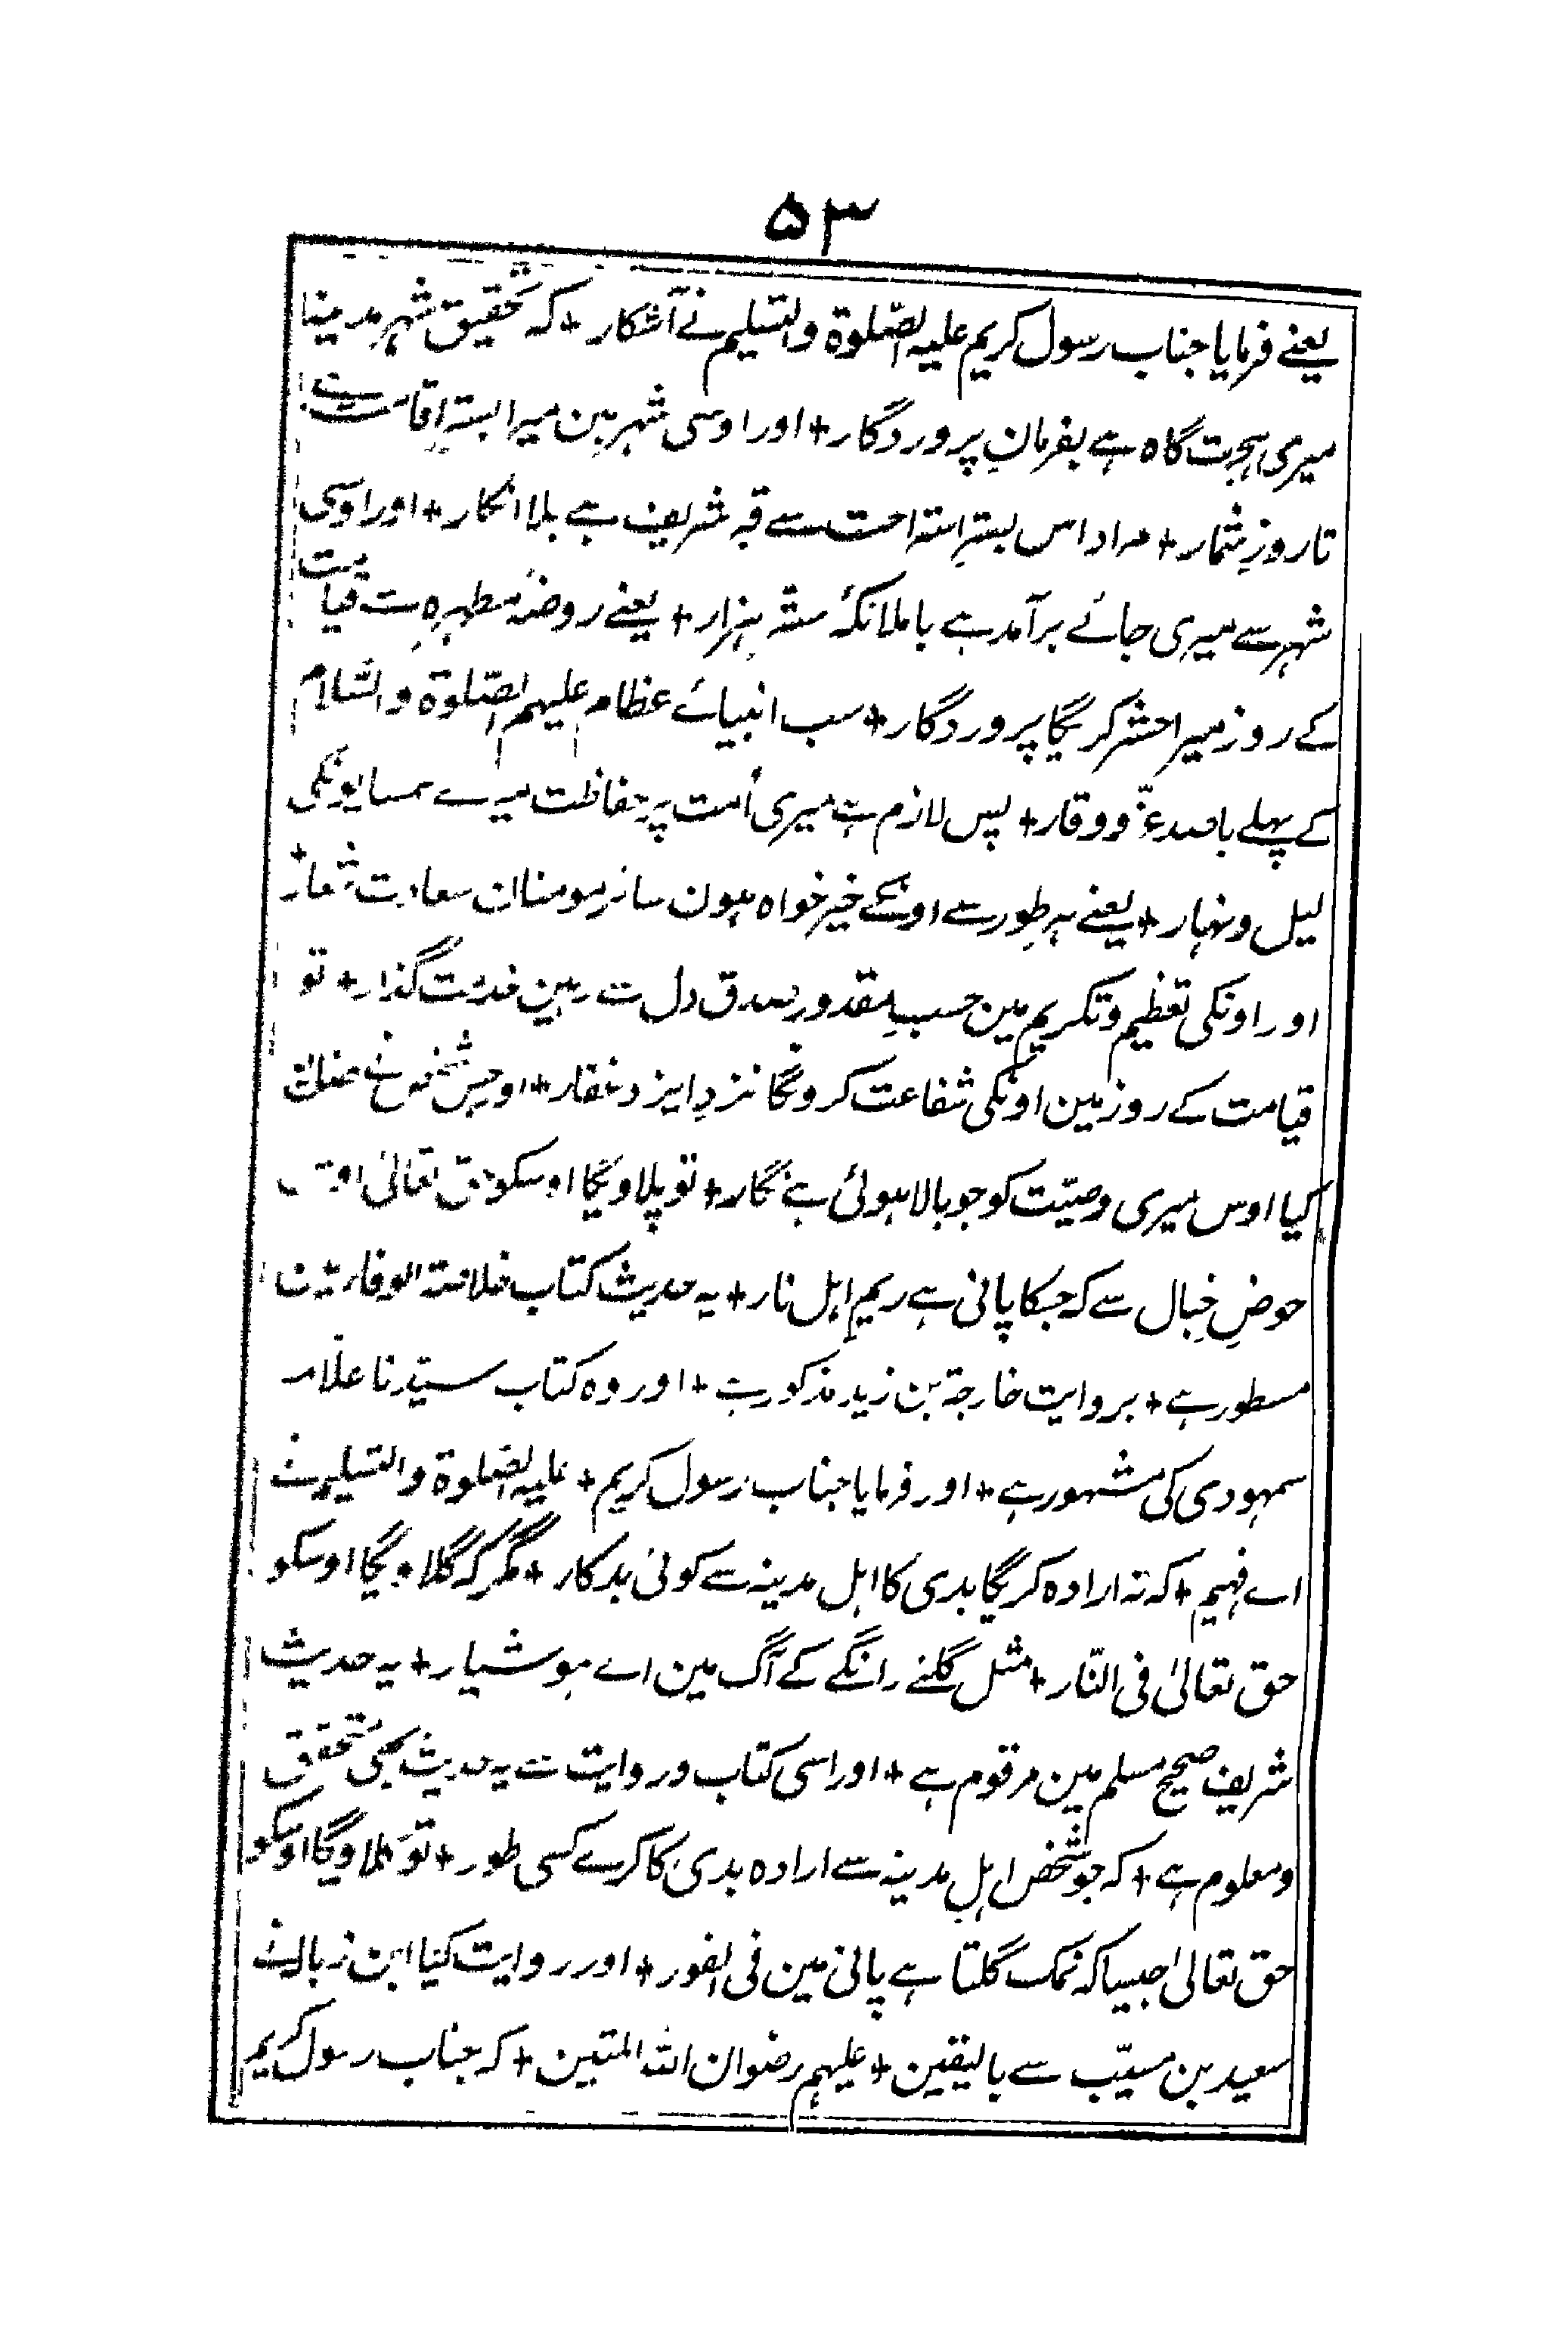 ۵۳
یعنے فرمایا جناب رسول کریم علیہ الصّلوۃ والتسلیم نے آشکار + کہ تحقیق شہر مدینا
میری ہجرت گاہ ہے بفرمانِ پروردگار + اور اوسی شہر مین میرا بسترِ اقامت ہے
تا روزِ شمار + مراد اس بسترِ استراحت سے قبر شریف ہے بلا انکار + اور اوسی
شہر سے میری جائے برآمد ہے با ملائکۂ ستّر ہزار + یعنے روضۂ مطہرہ سے قیامت
کے روز میرا حشر کریگا پروردگار + سب انبیائے عظام علیہم الصّلوۃ والسّلام
کے پہلے باصد عزّ و وقار + پس لازم ہے میری اُمت پر حفاظت میرے ہمسایونکی
لیل و نہار + یعنے ہر طور سے اونکے خیر خواہ ہون سائر مومنان سعادت شعار +
اور اونکی تعظیم و تکریم مین حسبِ مقدور صدق دل سے رہین خدمت گذار + تو
قیامت کے روز مین اونکی شفاعت کرونگا نزدِ ایزد غفار + اور جس شخص نے ضائع
کیا اوس میری وصیّت کو جو بالا ہوئی ہے نگار + تو پلاویگا اوسکو حق تعالیٰ اوس
حوضِ خِبال سے کہ جسکا پانی ہے ریمِ اہل نار + یہ حدیث کتاب خلاصۃ الوفا مین
مسطور ہے + بروایت خارجۃ بن زید مذکور ہے + اور وہ کتاب سیّدنا علّامہ
سمہودی کی مشہور ہے + اور فرمایا جناب رسول کریم + علیہ الصّلوۃ والتسلیم نے
اے فہیم + کہ نہ ارادہ کریگا بدی کا اہل مدینہ سے کوئی بدکار + مگر کہ گلاویگا اوسکو
حق تعالیٰ فی النّار + مثل گلنے رانگے کے آگ مین اے ہوشیار + یہ حدیث
شریف صحیح مسلم مین مرقوم ہے + اور اسی کتاب و روایت سے یہ حدیث بھی متحقق
و معلوم ہے + کہ جو شخص اہلِ مدینہ سے ارادہ بدی کا کرے کسی طور + تو گلاویگا اوسکو
حق تعالیٰ جیسا کہ نمک گلتا ہے پانی مین فی الفور + اور روایت کیا ابن زبالہ نے
سعید بن مسیّب سے بالیقین + علیہم رضوان اللہ المتین + کہ جناب رسول کریم